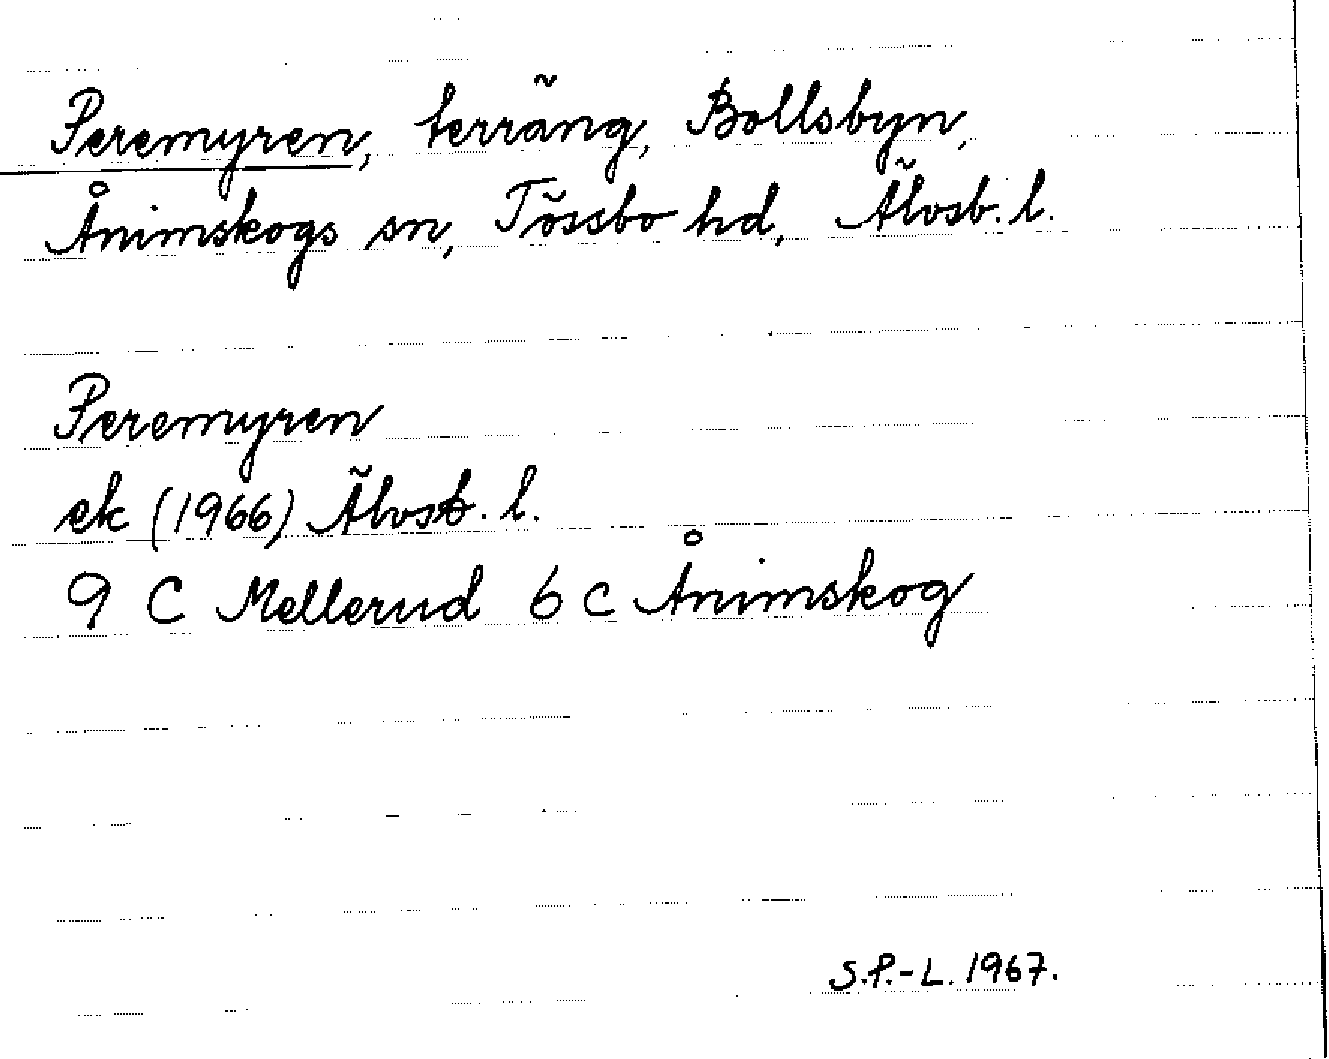 Peremyren, terräng, Bollsbyn,
Ånimskogs sn, Tössbo hd, Älvsb. l.
Peremyren
ek (1966) Älvsb. l.
9 C Mellerud 6 c Ånimskog
S.P.-L. 1967.